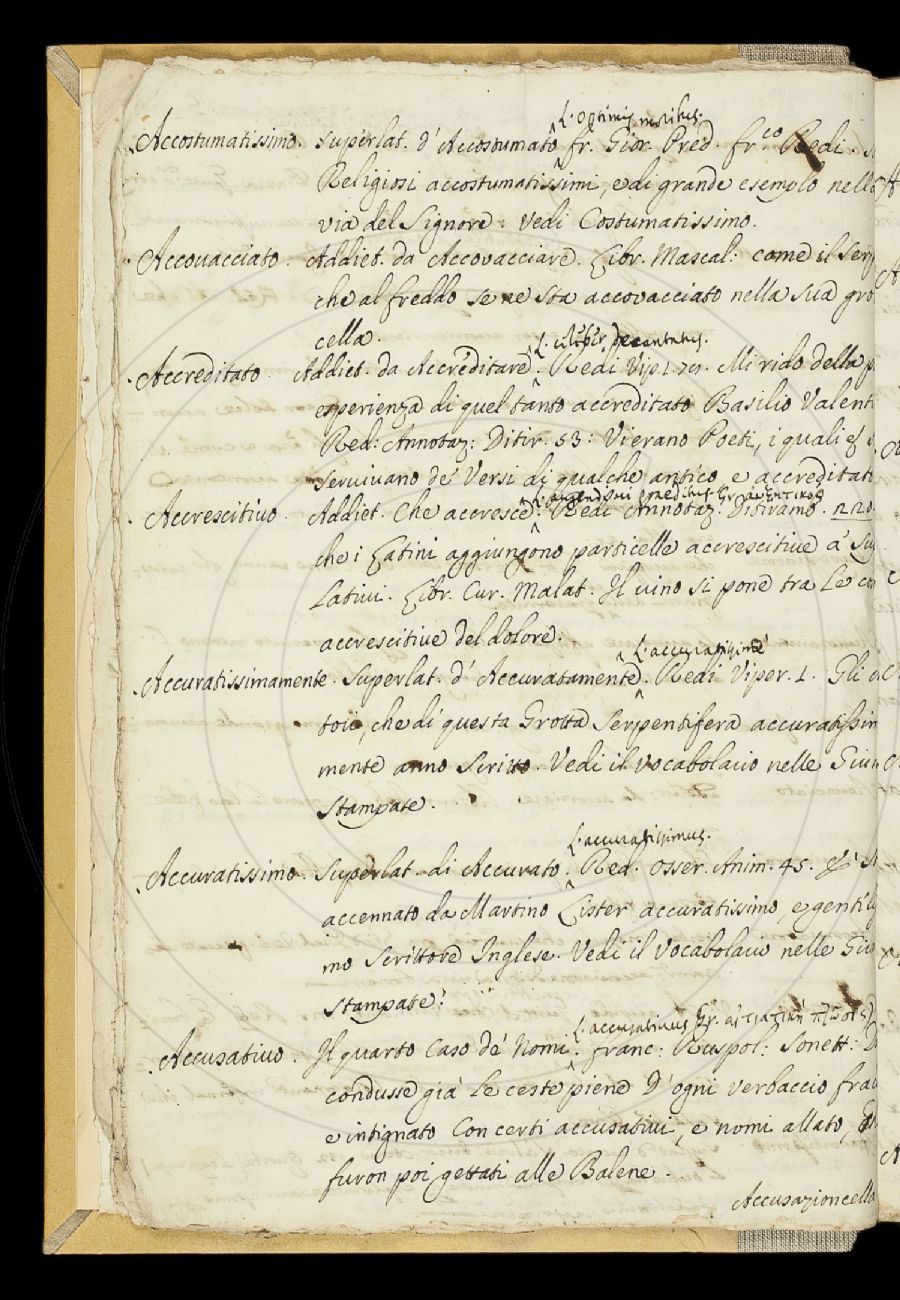 L. optimis moribus.
Accostumatissimo. Superlat. d'Accostumato. fr. Gior. Pred. fr.co Redi.
Religiosi accostumatissimi, e di grande esemplo nella
via del Signore: Vedi Costumatissimo.
Accovacciato. Addiet. da Accovacciare. Libr. Mascal: come il Serp
che al freddo se ne sta accovacciato nella sua gro
cella.
L. celeber, decantatus.
Accreditato. Addiet. da Accreditare. Redi Vip. 1. 79. Mi rido della
esperienza di quel tanto accreditato Basilio Valent
Red: Annotaz: Ditir. 53: Vi erano Poeti, i quali
servivano de' Versi di qualche antico e accreditato
L. augendi Gr. αὐξητικός
Accrescitivo. Addiet. Che accresce. Redi Annotaz. Ditiramb. 220.
che i Latini aggiungono particelle accrescitive a' Su
lativi. Libr. Cur. Malat. Il vino si pone tra le co
accrescitive del dolore.
L. accuratissimè
Accuratissimamente. Superlat. d'Accuratamente. Redi Viper. 1. Gli
torie, che di questa Grotta Serpentifera accuratissim
mente anno scritto. Vedi il Vocabolario nelle Giun
Stampate.
L. accuratissimus.
Accuratissimo. Superlat. di Accurato. Red. Osser. Anim. 45.
accennato da Martino Lister accuratissimo, e gentilis
imo Scrittore Inglese. Vedi il Vocabolario nelle Giu
Stampate.
L. accusativus Gr. αἰτιατικὴ πτῶσις
Accusativo. Il quarto Caso de' Nomi. franc: Ruspol: Sonett:
condusse già le ceste piene d'ogni verbaccio fra
e intignato Con certi accusativi, e nomi allato,
furon poi gettati alle Balene.
Accusazioncella